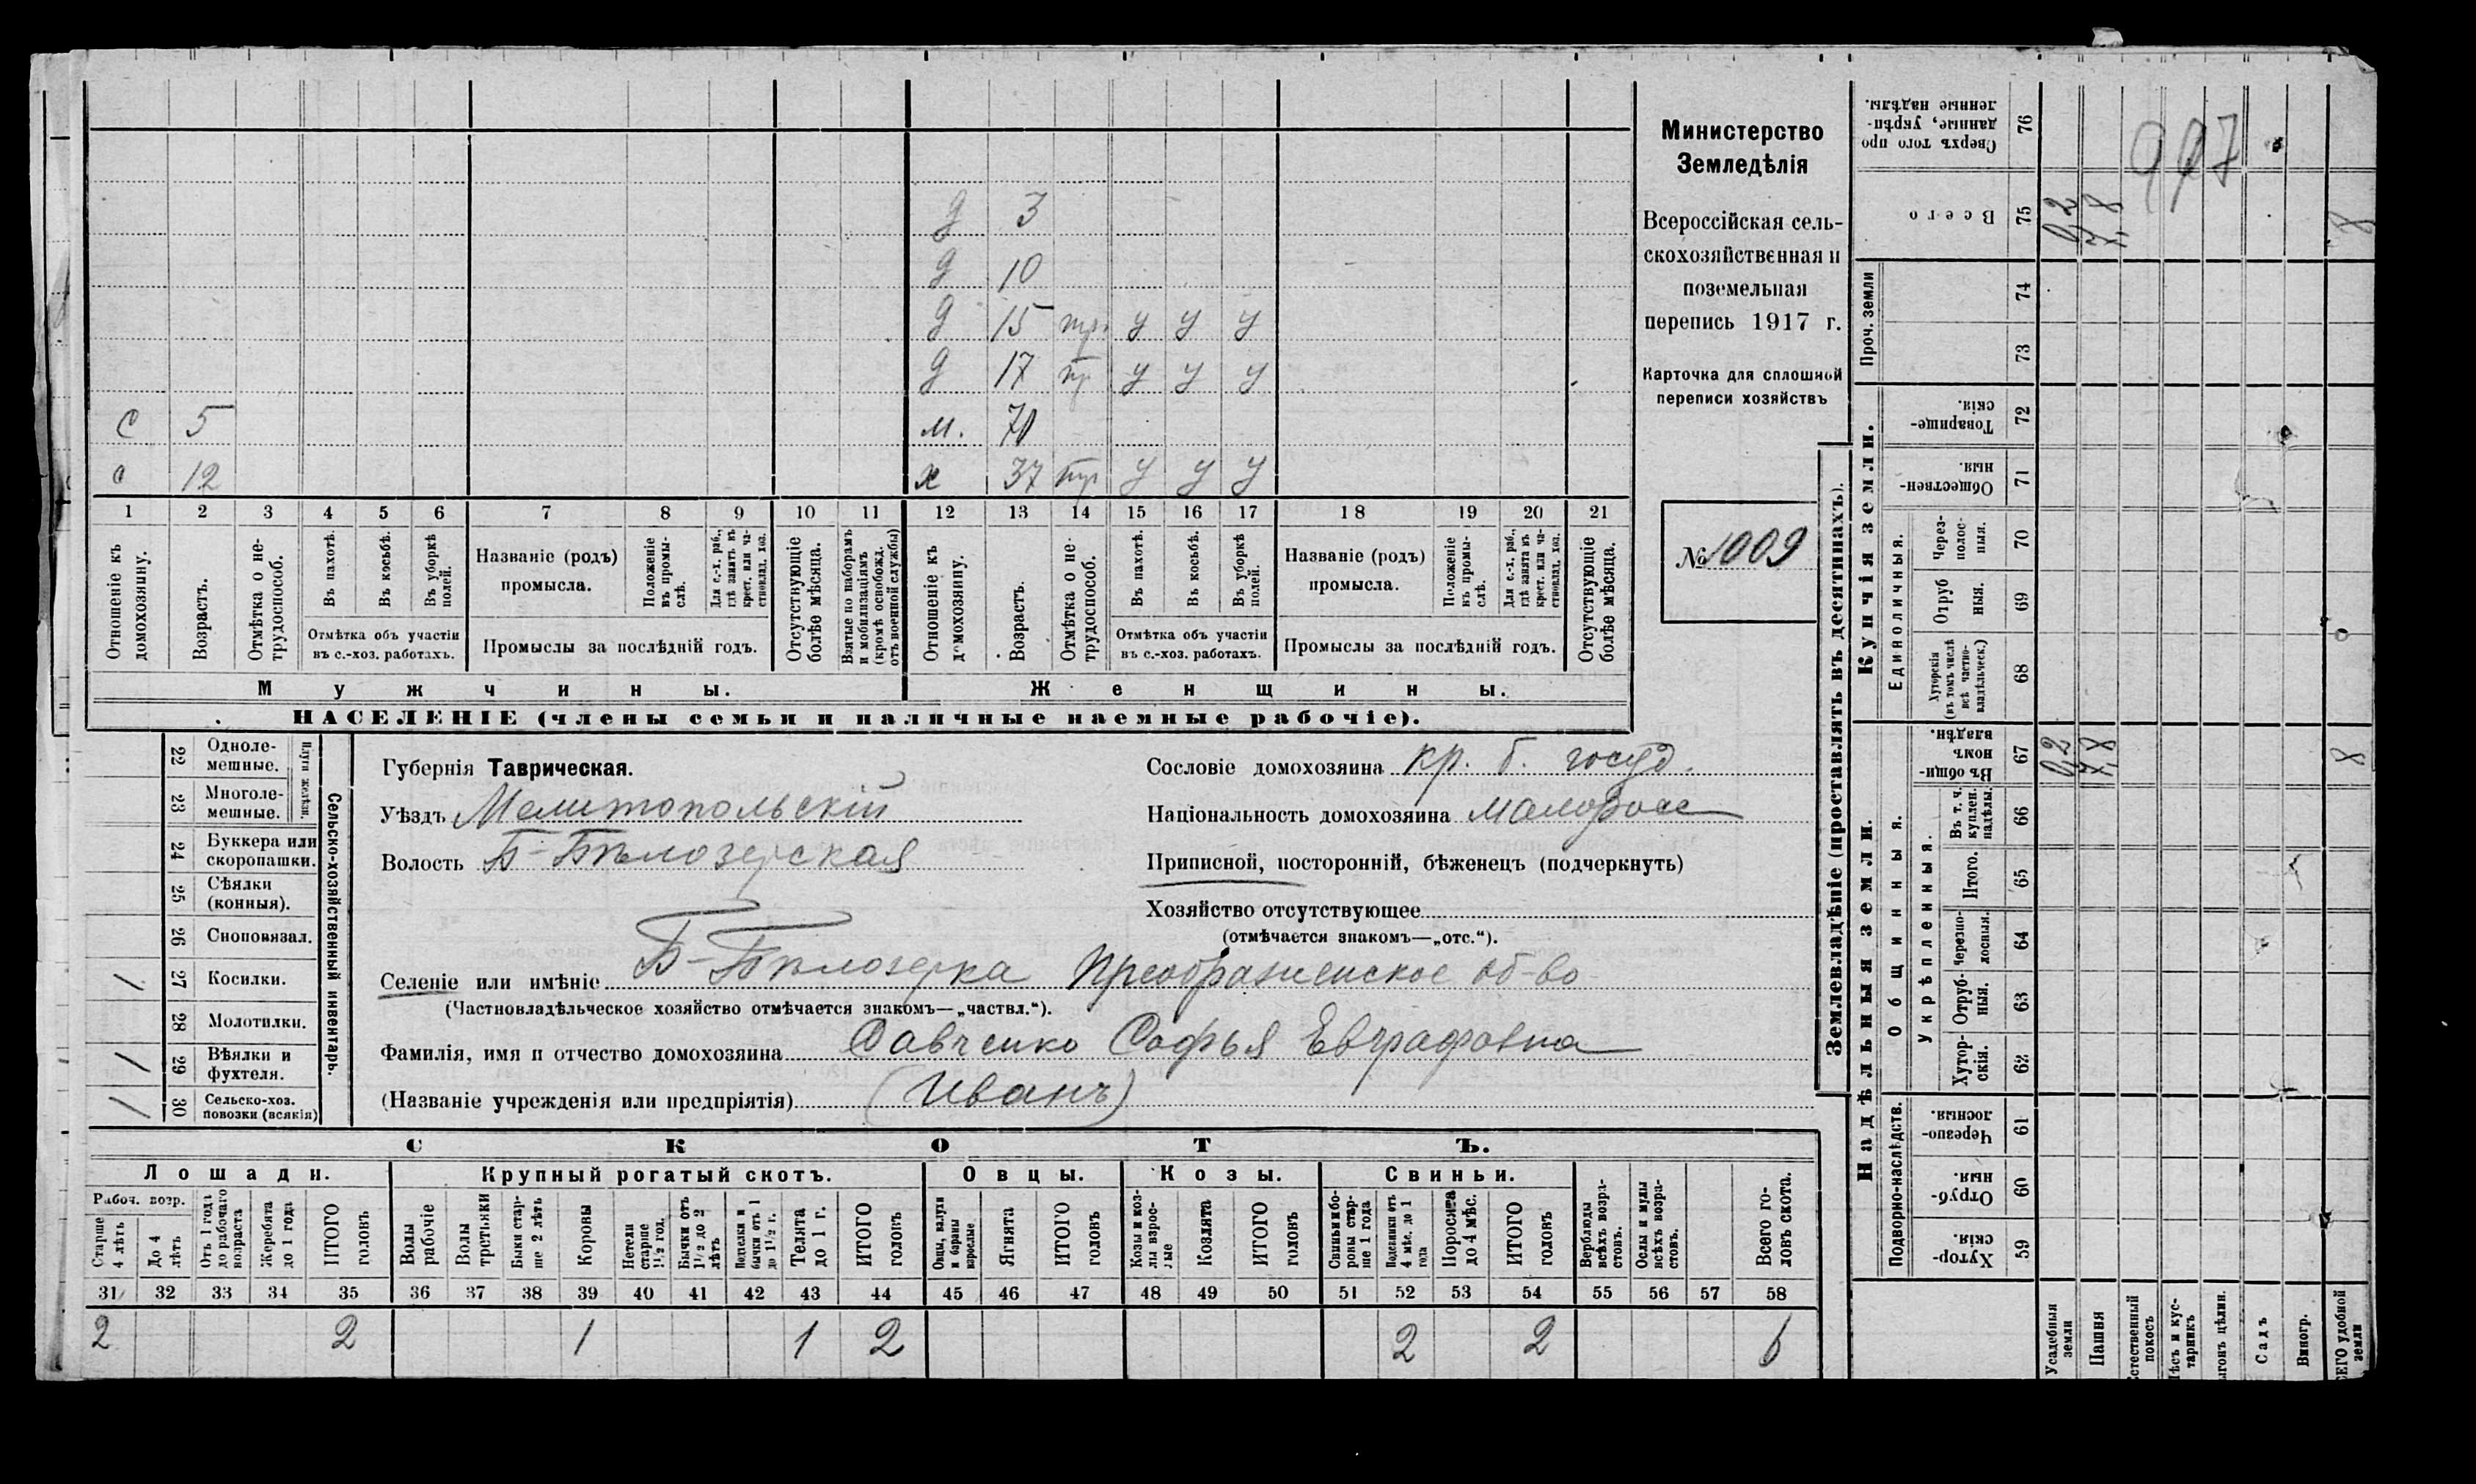 Министерство
Земледѣлія
Всероссійская сель-
скохозяйственная и
поземельная
перепись 1917 г.
Карточка для сплошной
переписи хозяйствъ
№ 1009
д 3
д 10
д 15 тр. у у у
д 17 тр у у у
с 5 м. 70
с 12 х 37 тр у у у
1 2 3 4 5 6 7 8 9 10 11 12 13 14 15 16 17 18 19 20 21
Отношеніе къ домохозяину.
Возрастъ.
Отмѣтка о не-трудоспособ.
Въ пахотѣ.
Въ косьбѣ.
Въ уборкѣ полей.
Отмѣтка объ участіи
въ с.-хоз. работахъ.
Названіе (родъ)
промысла.
Положеніе въ промы-слѣ.
Для с.-х. раб., гдѣ занятъ въ крест. или ча-стновлад. хоз.
Промыслы за послѣдній годъ.
Отсутствующіе болѣе мѣсяца.
Взятые по наборамъ и мобилизаціямъ (кромѣ освобожд. отъ военной службы)
Отношеніе къ домохозяину.
Возрастъ.
Отмѣтка о не-трудоспособ.
Въ пахотѣ.
Въ косьбѣ.
Въ уборкѣ полей.
Отмѣтка объ участіи
въ с.-хоз. работахъ.
Названіе (родъ)
промысла.
Положеніе въ промы-слѣ.
Для с.-х. раб., гдѣ занята въ крест. или ча-стновлад. хоз.
Промыслы за послѣдній годъ.
Отсутствующіе болѣе мѣсяца.
Мужчины. Женщины.
НАСЕЛЕНІЕ (члены семьи и наличные наемные рабочіе).
22 Одноле-мешные.
23 Многоле-мешные.
Плуги желѣзн.
24 Буккера или скоропашки.
25 Сѣялки (конныя).
26 Сноповязал.
1 27 Косилки.
28 Молотилки.
1 29 Вѣялки и фухтеля.
1 30 Сельско-хоз. повозки (всякія)
Сельско-хозяйственный инвентарь.
Губернія Таврическая.
Уѣздъ Мелитопольскій
Волость Б-Бѣлозерская
Сословіе домохозяина кр. б. госуд.
Національность домохозяина малоросс
Приписной, посторонній, бѣженецъ (подчеркнуть)
Хозяйство отсутствующее
(отмѣчается знакомъ—„отс.“).
Селеніе или имѣніе Б-Бѣлозерка Преображенское об-во
(Частновладѣльческое хозяйство отмѣчается знакомъ—„частвл.“).
Фамилія, имя и отчество домохозяина Савченко Софья Евграфовна
(Названіе учрежденія или предпріятія) (Иванъ)
СКОТЪ.
Лошади. Крупный рогатый скотъ. Овцы. Козы. Свиньи.
Рабоч. возр.
Старше 4 лѣтъ
До 4 лѣтъ
Отъ 1 года до рабочаго возраста
Жеребята до 1 года
ИТОГО головъ
Волы рабочіе
Волы третьяки
Быки стар-ше 2 лѣтъ
Коровы
Нетели старше 1½ год.
Бычки отъ 1½ до 2 лѣтъ
Подтелки и бычки отъ 1 до 1½ г.
Телята до 1 г.
ИТОГО головъ
Овцы, валухи и бараны взрослые
Ягнята
ИТОГО головъ
Козы и коз-лы взрос-лые
Козлята
ИТОГО головъ
Свиньи и бо-ровы стар-ше 1 года
Подсвинки отъ 4 мѣс. до 1 года
Поросята до 4 мѣс.
ИТОГО головъ
Верблюды всѣхъ возра-стовъ.
Ослы и мулы всѣхъ возра-стовъ.
Всего го-ловъ скота.
31 32 33 34 35 36 37 38 39 40 41 42 43 44 45 46 47 48 49 50 51 52 53 54 55 56 57 58
2 2 1 1 2 2 2 6
Землевладѣніе (проставлять въ десятинахъ).
Купчія земли.
Надѣльныя земли.
Сверхъ того про данные, укрѣп-ленные надѣлы. 76
997
Всего 75 0,2 7,8 8
Проч. земли 74
73
Товарище-скія. 72
Обществен-ныя. 71
Единоличныя.
Через-полос-ныя. 70
Отруб ныя. 69
Хуторскія (въ томъ числѣ всѣ частно-владѣльческ.) 68
Въ общи-номъ владѣн. 67 0,2 7,8 8
Общинныя.
Укрѣпленныя.
Въ т. ч. куплен. надѣлы. 66
Итого. 65
Черезпо-лосныя. 64
Отруб-ныя. 63
Хутор-скія. 62
Подворно-наслѣдств.
Черезпо-лосныя. 61
Отруб-ныя. 60
Хутор-скія 59
Усадебныя земли
Пашня
стественный покосъ
ѣсъ и кус-тарникъ
ыгонъ цѣлин.
Садъ
Виногр.
СЕГО удобной земли